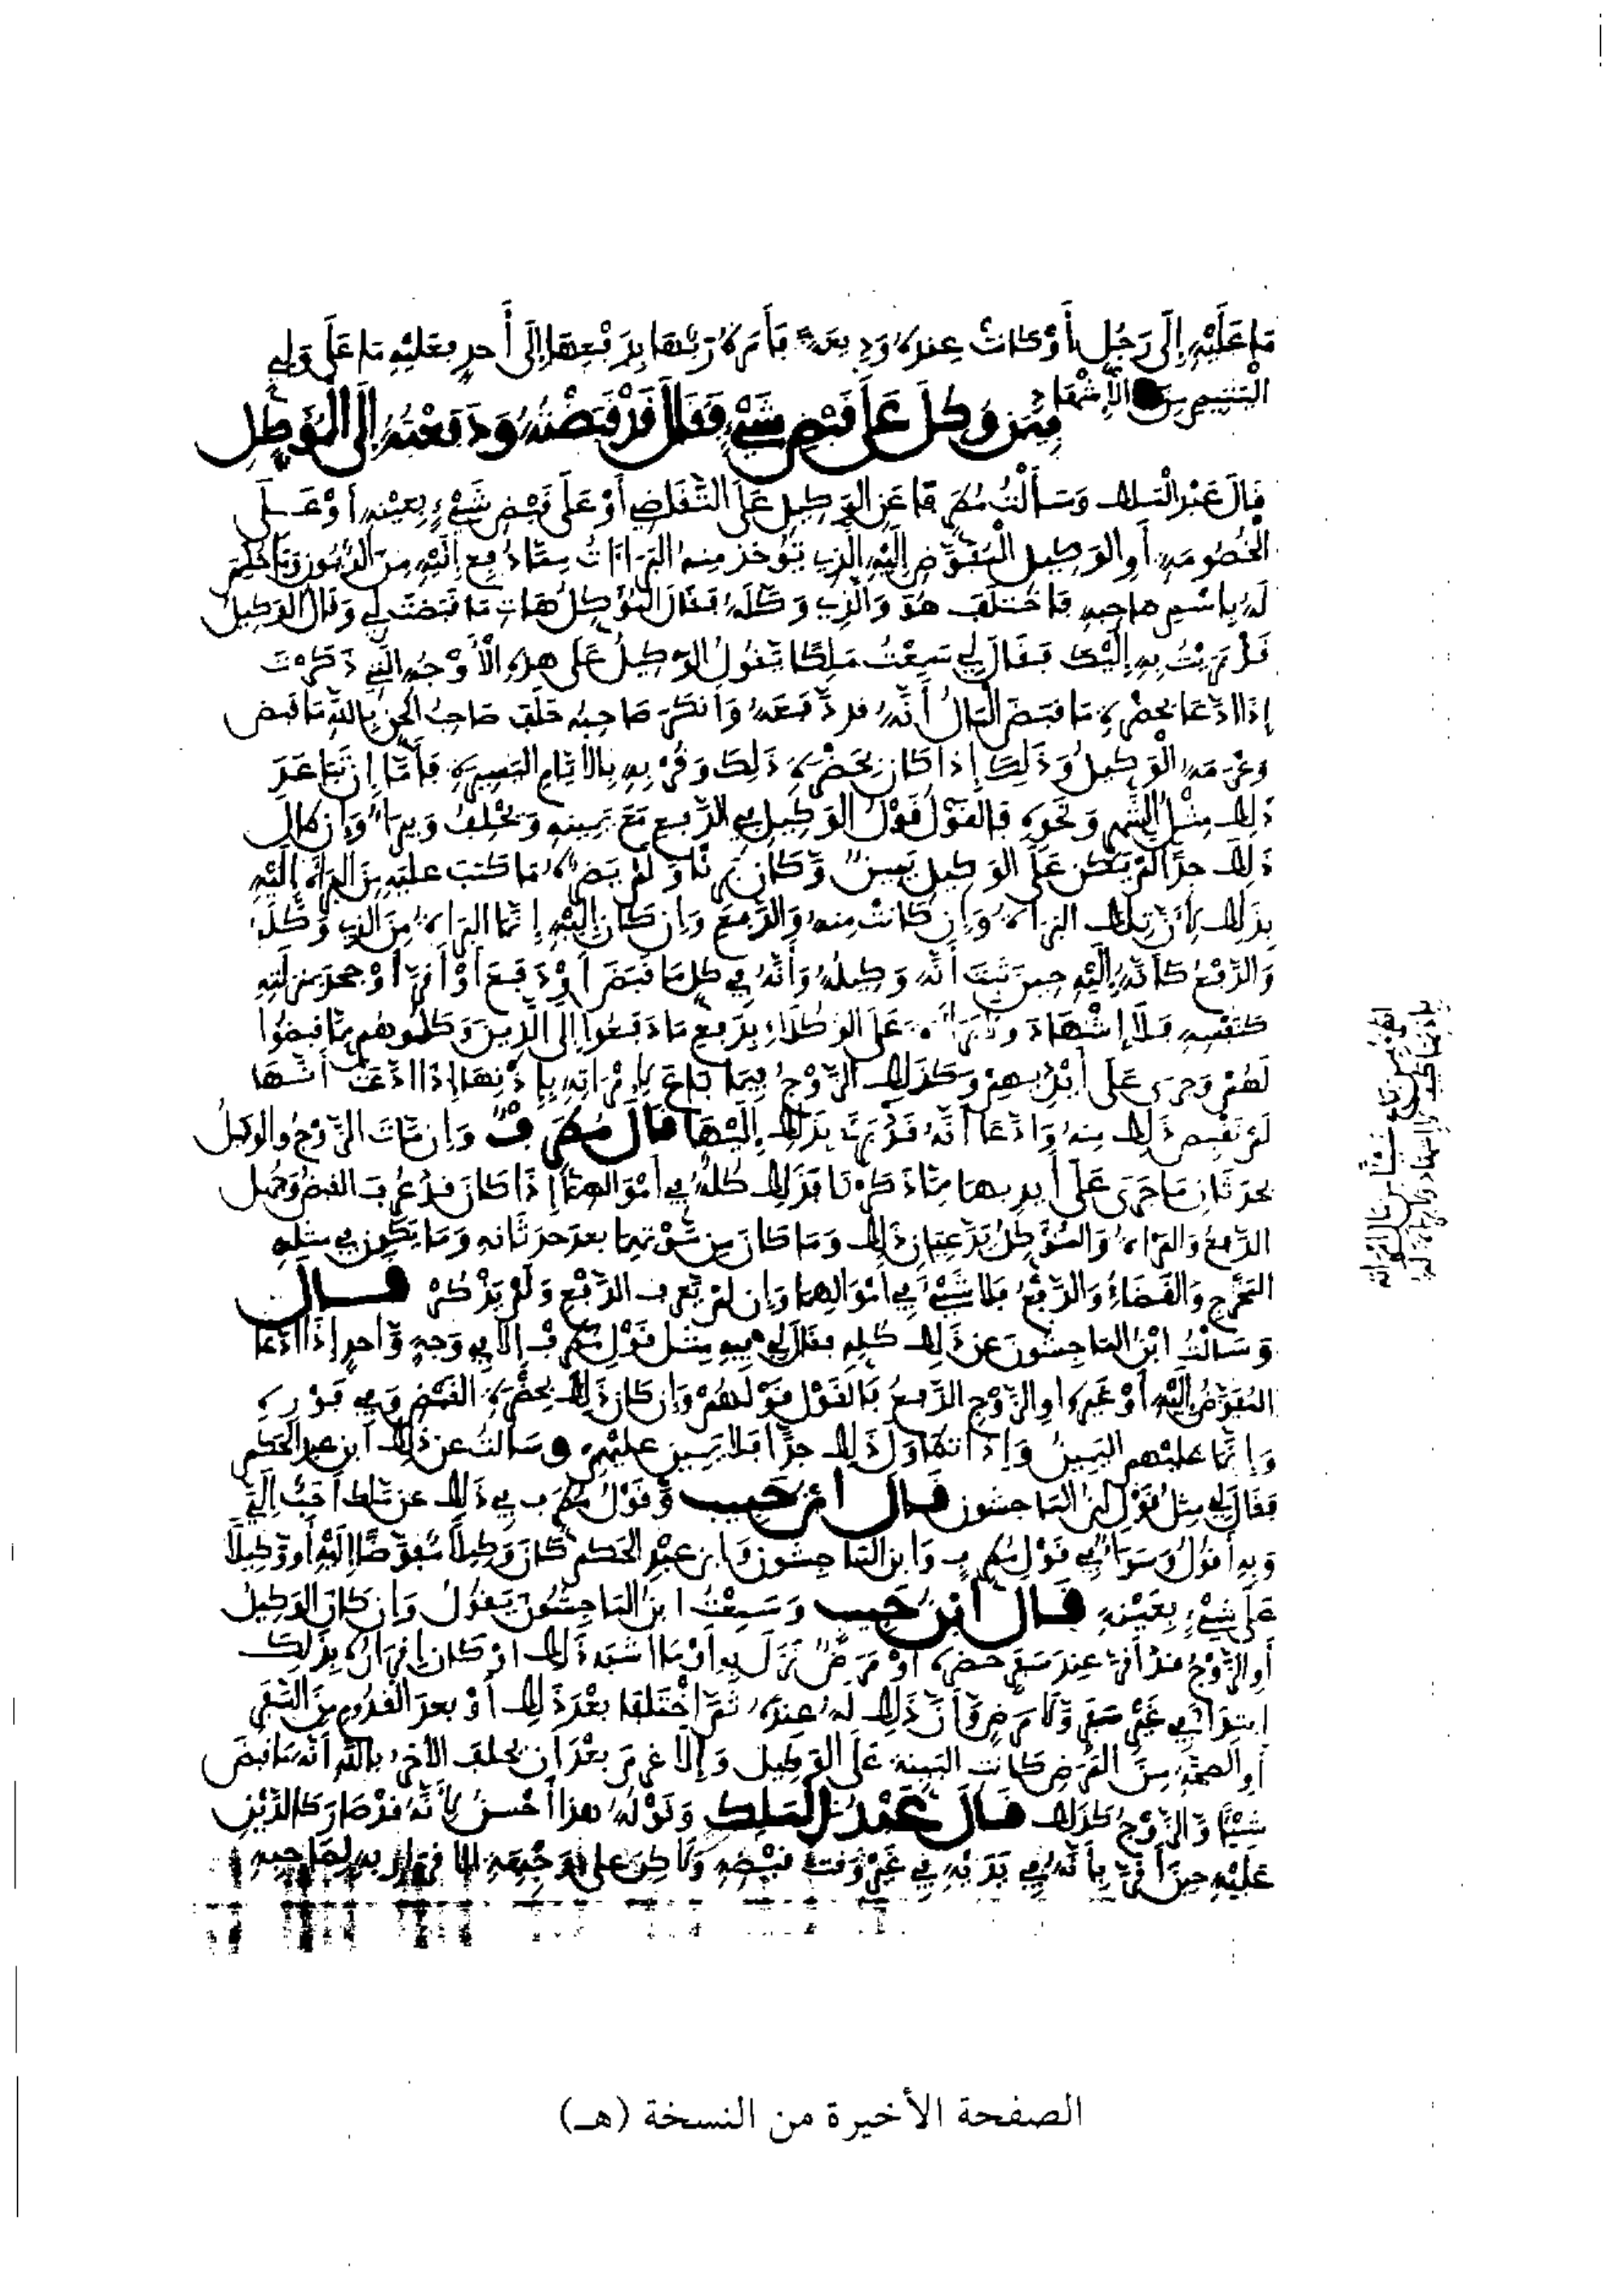 ما عليه إلى رجل أو كانت عنده وديعة فأمره ربها بدفعها إلى أحد فعليه ما على ولي
اليتيم من الإشهاد
فيمن وكل على قبض شيء فقال قد قبضته ودفعته إلى الموكل
قال عبد الملك وسألت مطرفا عن الوكيل على التقاضي أو على قبض شيء بعينه أو على
الخصومة أو الوكيل المفوض إليه الذي تؤخذ منه البراءات مما دفع إليه من الديون
له باسم صاحبه فاختلف هو والذي وكله فقال الموكل هات ما قبضت لي وقال الوكيل
قد برئت به إليك فقال لي سمعت ملكا يقول الوكيل على هذه الأوجه التي ذكرت
إذا ادعا بحضرة ما قبض المال أنه قد دفعه وأنكر صاحبه حلف صاحب الحق بالله ما قبض
وغرمه الوكيل وذلك إذا كان بحضرة ذلك وقربه بالأيام اليسيرة فأما إن تباعد
ذلك مثل الشهر ونحوه فالقول قول الوكيل في الدفع مع يمينه ويحلف ويبرأ وإن كان
ذلك جدا لم يكن على الوكيل يمين وكان بريا ولم يضره ما كتب عليه من البراءة إليه
بذلك لأن تلك البراءة وإن كانت منه والدفع وإن كان إليه إنما البراءة من الذي وكله
والدفع كأنه إليه حين ثبت أنه وكيله وأنه في كل ما قبض أو دفع أو أقر أو جحد بمنزلته
كنفسه فلا إشهاد ولا براءة على الوكلاء بدفع ما دفعوا إلى الذين وكلوهم مما قبضوا
لهم وجرى على أيديهم وكذلك الزوج فيما باع لامرأته بإذنها إذا ادعت أنها
لم تقبض ذلك منه وادعا أنه قد برئ بذلك إليها قال مطرف وإن مات الزوج والوكيل
بحدثان ما جرى على أيديهما مما ذكرنا فذلك كله في أموالهما إذا كان قد عرف القبض وجهل
الدفع والبراءة والموكل يدعيان ذلك وما كان من موتهما بعد حدثانه وما يكون في مثله
المخرج والقضاء والدفع فلا شيء في أموالهما وإن لم يعرف الدفع ولم يذكر قال
وسألت ابن الماجشون عن ذلك كله فقال لي فيه مثل قول مطرف إلا في وجه واحد إذا ادعا
المفوض إليه أو غيره أو الزوج الدفع فالقول قولهم وإن كان ذلك بحضرة القبض وفي فوره
وإنما عليهم اليمين وإذا تطاول ذلك جدا فلا يمين عليهم وسألت عن ذلك ابن عبد الحكم
فقال لي مثل قول ابن الماجشون قال ابن حبيب وقول مطرف في ذلك عن ملك أحب إلي
وبه أقول وسواء في قول مطرف وابن الماجشون وابن عبد الحكم كان وكيلا مفوضا إليه أو وكيلا
على شيء بعينه قال ابن حبيب وسمعت ابن الماجشون يقول وإن كان الوكيل
أو الزوج قد أقر عند سفر حضره أو مرض نزل به أو ما أشبه ذلك أو كان إقراره بذلك
ابتداء في غير سفر ولا مرض وأن ذلك له عنده ثم اختلفا بعد ذلك أو بعد القدوم من السفر
أو الصحة من المرض كانت البينة على الوكيل وإلا غرم بعد أن يحلف الآخر بالله أنه ما قبض
شيئا والزوج كذلك قال عبد الملك وقوله هذا أحسن لأنه قد صار كالدين
عليه حين أقر بأنه في يديه في غير وقت قبضه ولاكن على وجه الإقرار به لصاحبه
الصفحة الأخيرة من النسخة (هـ)